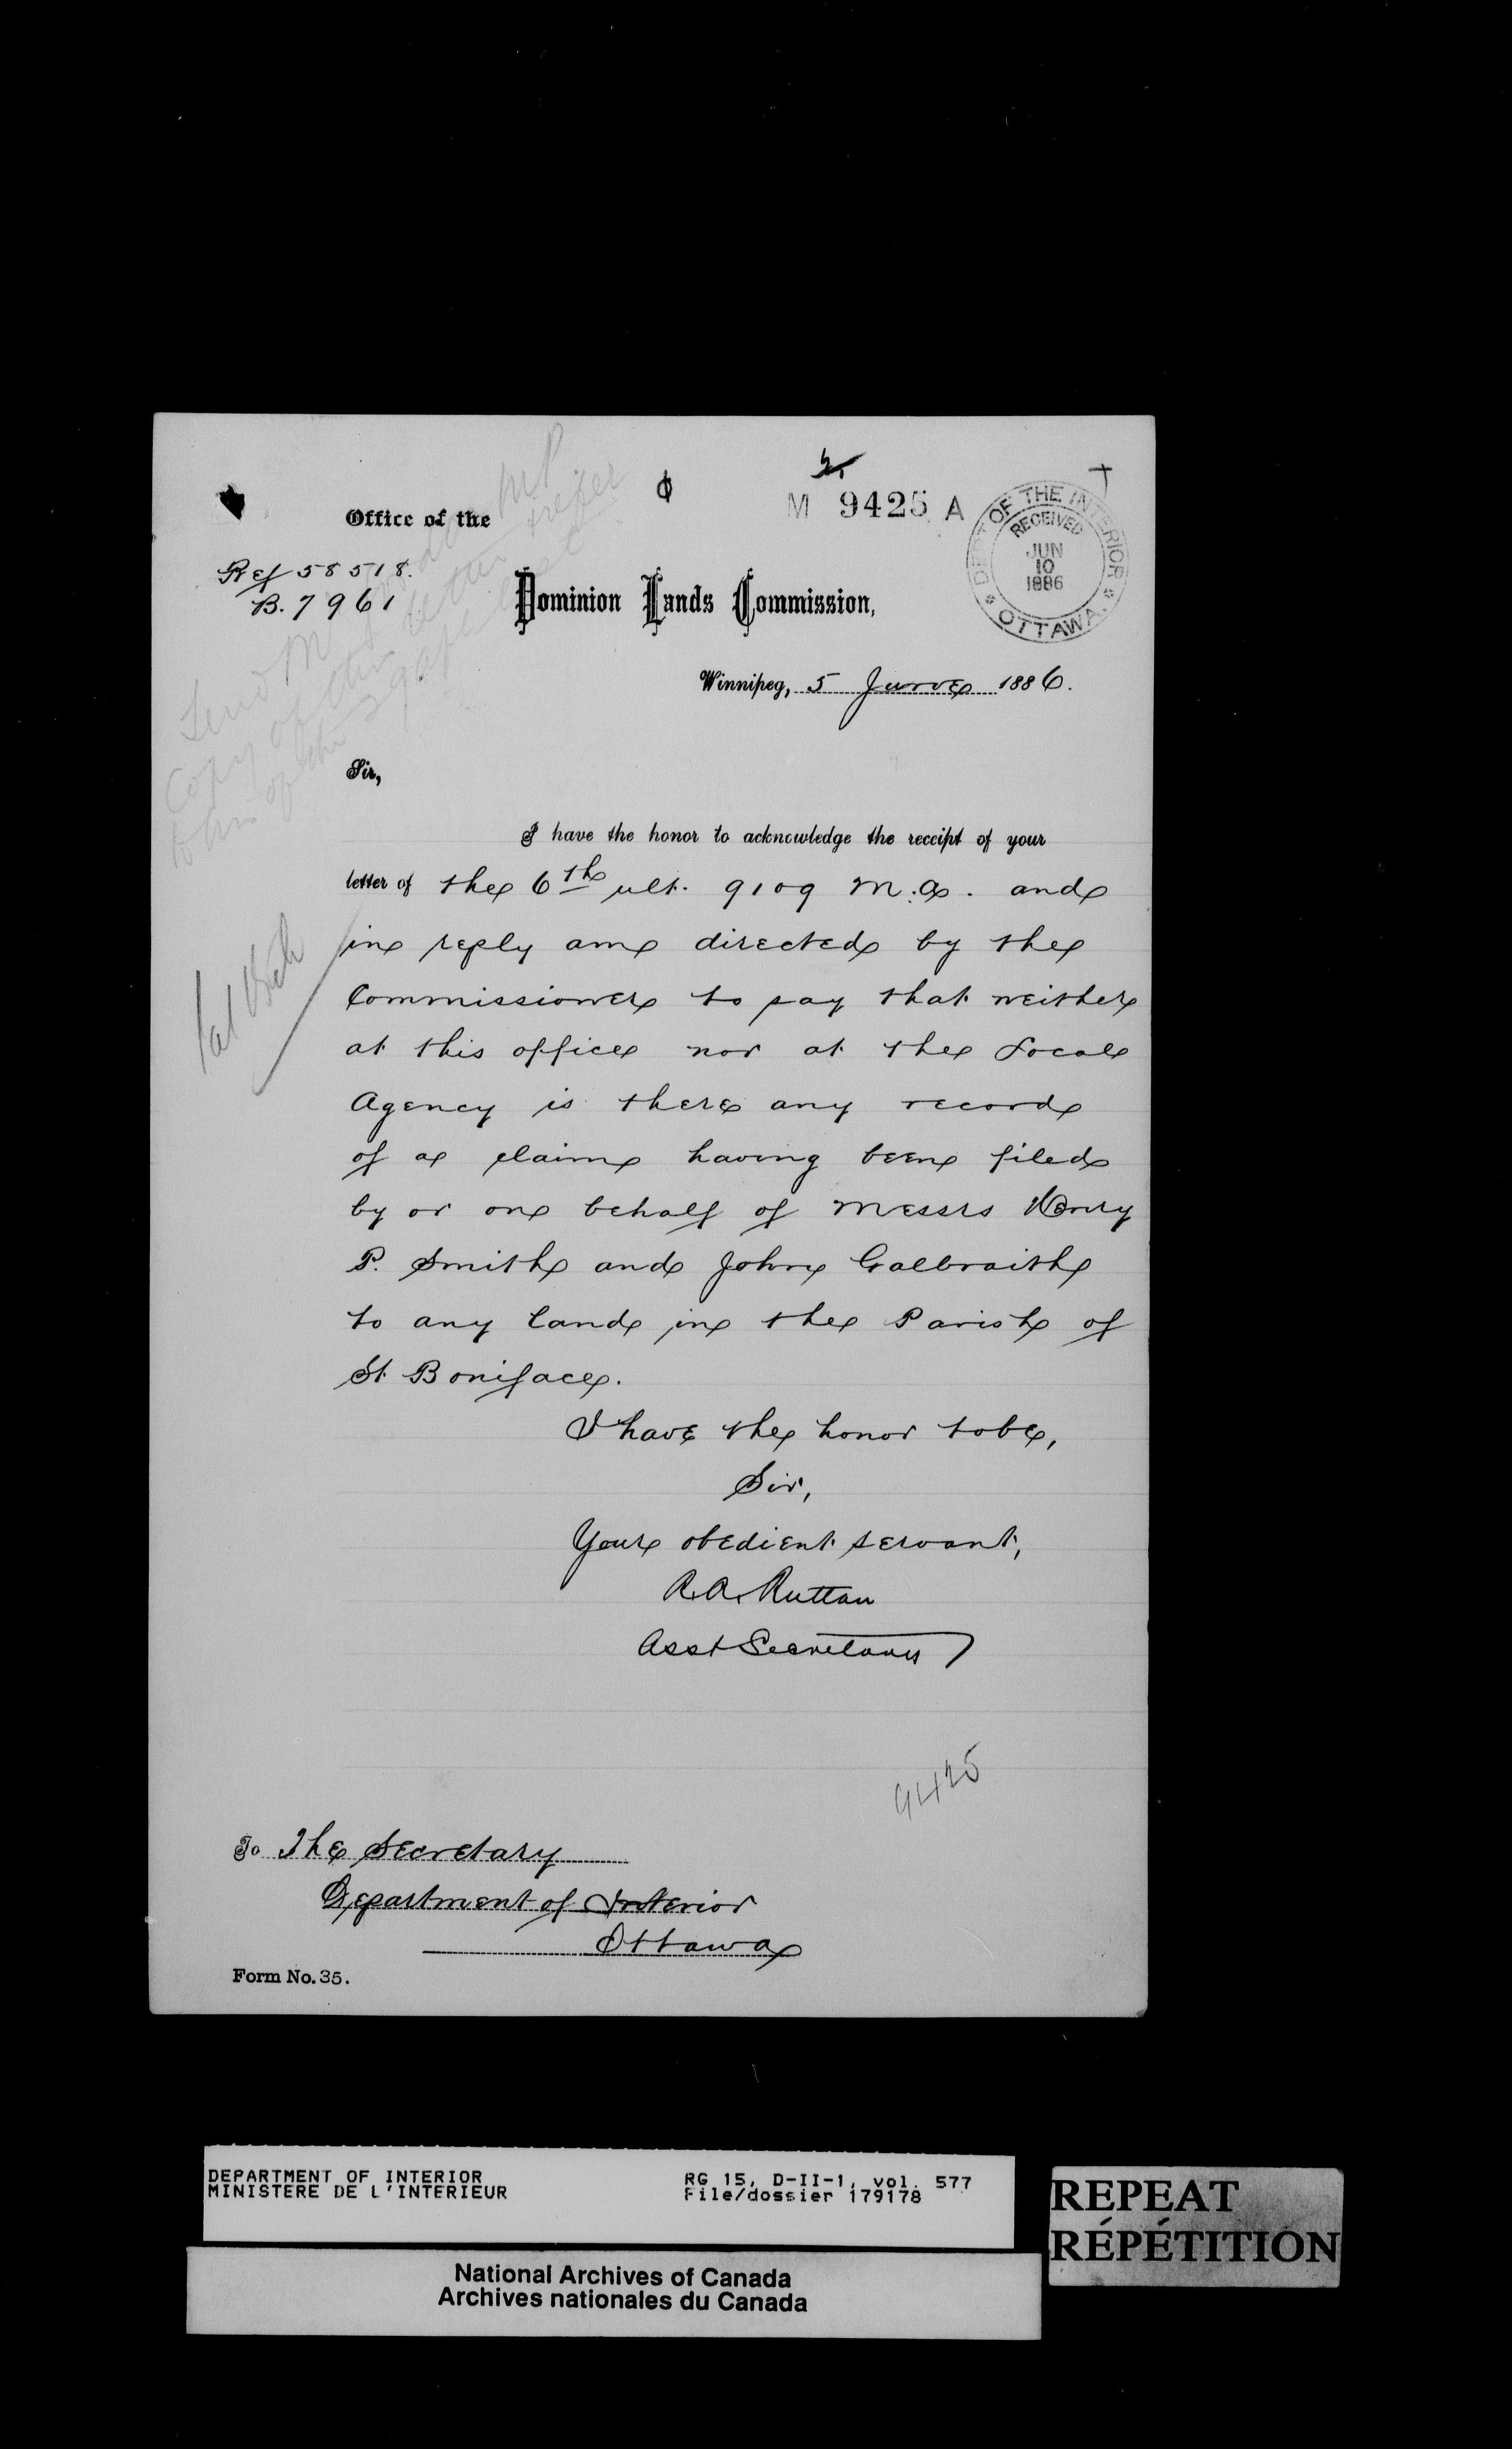 M 9425 A
DEPT OF THE INTERIOR
RECEIVED
JUN
10
1886
OTTAWA.
Office of the
Ref 58518.
B. 7961
Dominion Lands Commission,
Winnipeg, 5 June 1886.
Send Mr MP
copy of this letter & refer
to his of the 29 Apl last
Sir,
I have the honor to acknowledge the receipt of your
letter of the 6th ult. 9109 M.A. and
in reply am directed by the
Commissioner to say that neither
at this office nor at the Local
Agency is there any record
of a claim having been filed
by or on behalf of Messrs Henry
P. Smith and John Galbraith
to any land in the Parish of
St. Boniface.
I have the honor to be,
Sir,
Your obedient servant,
R.A. Ruttan
Asst Secretary
9425
To The Secretary
Department of Interior
Ottawa
Form No. 35.
DEPARTMENT OF INTERIOR
MINISTERE DE L'INTERIEUR
RG 15, D-II-1, vol. 577
File/dossier 179178
REPEAT
RÉPÉTITION
National Archives of Canada
Archives nationales du Canada